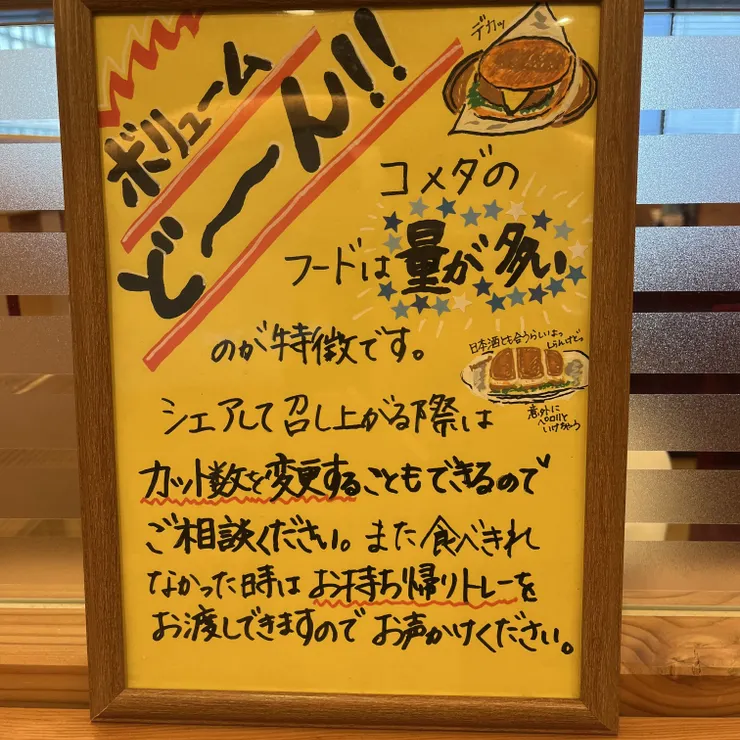 ボリューム
ど〜ん!!
デカッ
コメダの
フードは量が多い
のが特徴です。
日本酒とも合うらしいよっ
しらんけどっ
意外に
ペロリと
いけちゃう
シェアして召し上がる際は
カット数を変更することもできるので
ご相談ください。また食べきれ
なかった時はお持ち帰りトレーを
お渡しできますのでお声かけください。